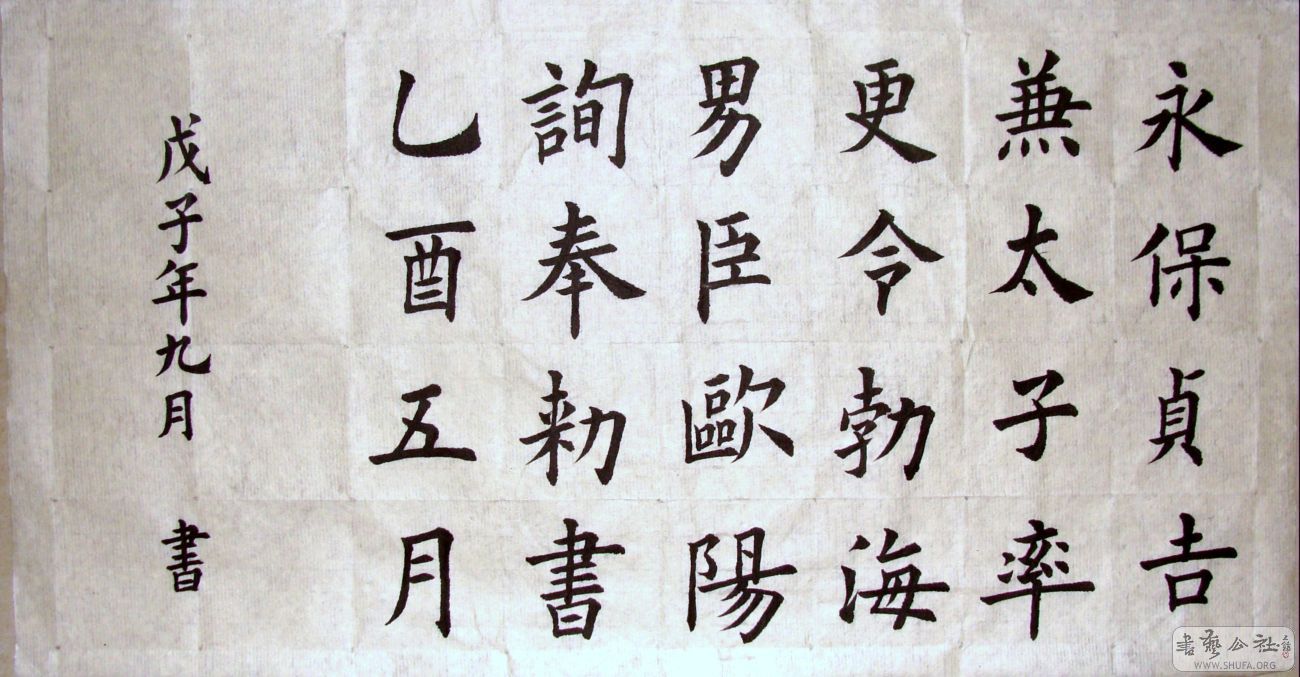 永保貞吉
兼太子率
更令勃海
男臣歐陽
詢奉勑書
乙酉五月
戊子年九月 書
書藝公社
WWW.SHUFA.ORG